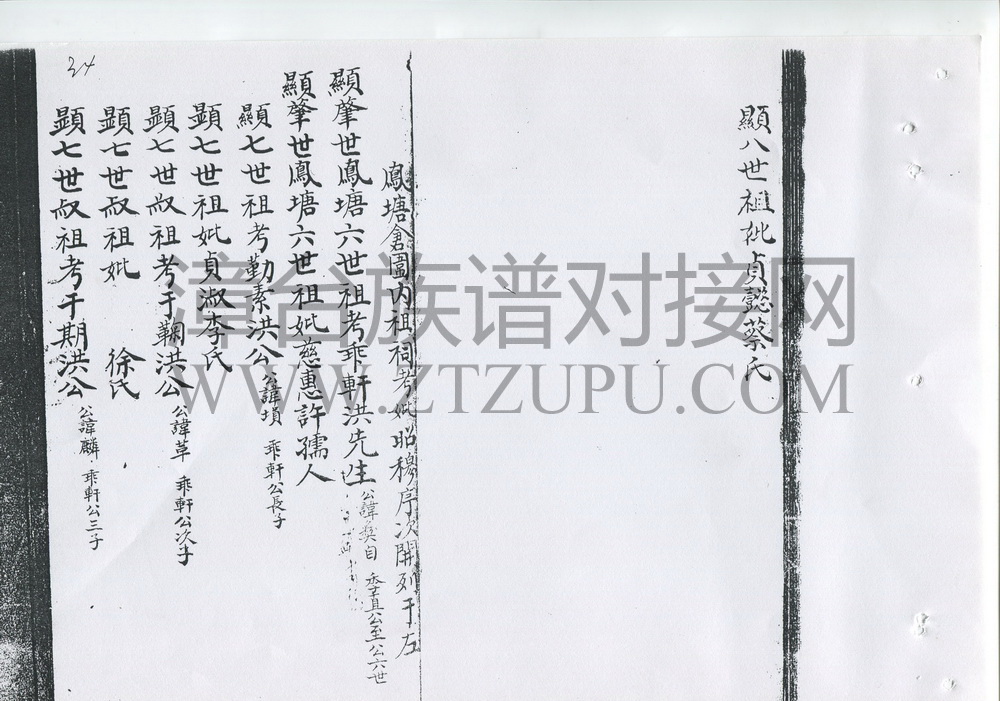 顯八世祖妣貞懿蔡氏
鳳塘倉園內祖祠考妣昭穆序次開列于左
顯肇世鳳塘六世祖考乖軒洪先生 公諱 自 公至公六世
顯肇世鳳塘六世祖妣慈惠許孺人
顯七世祖考勤素洪公 公諱塤 乖軒公長子
顯七世祖妣貞淑李氏
顯七世叔祖考于鞠洪公 公諱草 乖軒公次子
顯七世叔祖妣 徐氏
顯七世叔祖考于期洪公 公諱麟 乖軒公三子
34
漳台族谱对接网
WWW.ZTZUPU.COM